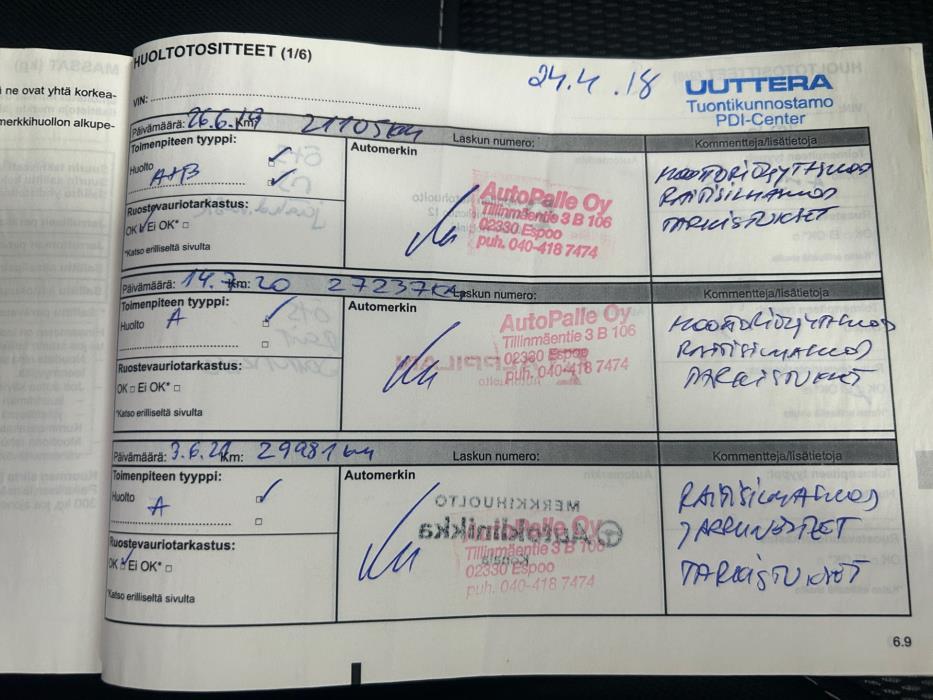 MASSAT (kg)
ä ne ovat yhtä korkea-
merkkihuollon alkupe-
HUOLTOTOSITTEET (1/6)
24.4.18
UUTTERA
Tuontikunnostamo
PDI-Center
VIN:
Päivämäärä: 26.6.19 Km: 21105km Laskun numero: Kommentteja/lisätietoja
Toimenpiteen tyyppi:
Automerkin
Huolto
A+B
Ruostevauriotarkastus:
OK Ei OK*
*Katso erilliseltä sivulta
AutoPalle Oy
Tillinmäentie 3 B 106
02330 Espoo
puh. 040-418 7474
RAITISILMASUOD
TARKISTUKSET
Päivämäärä: 14.7.20 Km: 27237km Laskun numero: Kommentteja/lisätietoja
Toimenpiteen tyyppi:
Automerkin
Huolto A
Ruostevauriotarkastus:
OK Ei OK*
*Katso erilliseltä sivulta
AutoPalle Oy
Tillinmäentie 3 B 106
02330 Espoo
puh. 040-418 7474
RAITISILMASUOD
TARKISTUKSET
Päivämäärä: 3.6.21 Km: 29981km Laskun numero: Kommentteja/lisätietoja
Toimenpiteen tyyppi:
Automerkin
Huolto
A
Ruostevauriotarkastus:
OK Ei OK*
*Katso erilliseltä sivulta
MERKKIHUOLTO
Autoklinikka
Konala
AutoPalle Oy
Tillinmäentie 3 B 106
02330 Espoo
puh. 040-418 7474
RAITISILMASUOD
JARRUNESTEET
TARKISTUKSET
6.9